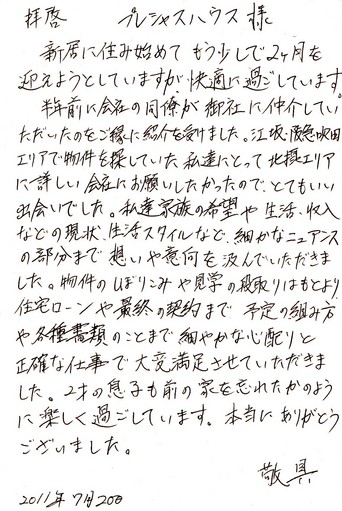 拝啓　プレシャスハウス 様
新居に住み始めて もう少しで2ヶ月を
迎えようとしていますが、快適に過ごしています。
半年前に会社の同僚が 御社に仲介してい
ただいたのをご縁に紹介を受けました。江坂・阪急吹田
エリアで物件を探していた 私達にとって 北摂エリア
に詳しい会社にお願いしたかったので、とてもいい
出会いでした。私達家族の希望や 生活、収入
などの現状、生活スタイルなど、細かなニュアンス
の部分まで 想いや意向を 汲んでいただきま
した。物件のしぼりこみや見学の段取りはもとより、
住宅ローンや最終の契約まで 予定の組み方
や各種書類のことまで 細やかな心配りと
正確な仕事で大変満足させていただきま
した。2才の息子も前の家を忘れたかのよう
に楽しく過ごしています。本当にありがとう
ございました。
敬具
2011年7月20日